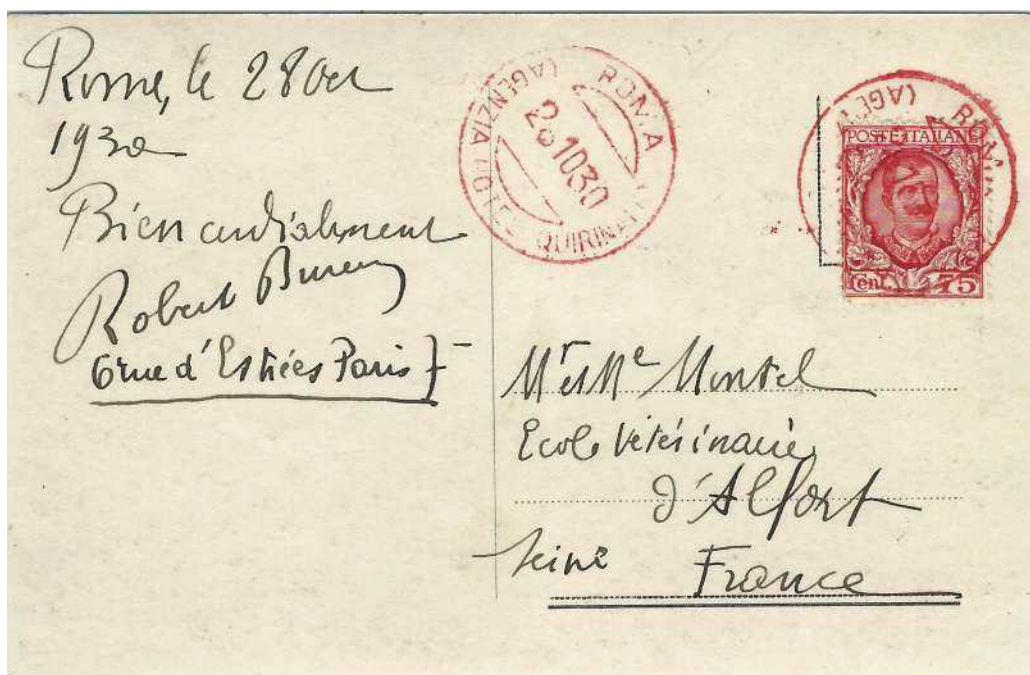 Rome, le 28 Oct
1930
Bien cordialement
Robert
6 rue d'Estrées Paris 7
ROMA
(AGENZIA HOTEL QUIRINALE)
28 10 30
ROMA
(AGE
POSTE ITALIANE
Cent. 75
Mr et Me Montel
Ecole Vétérinaire
d'Alfort
Seine France